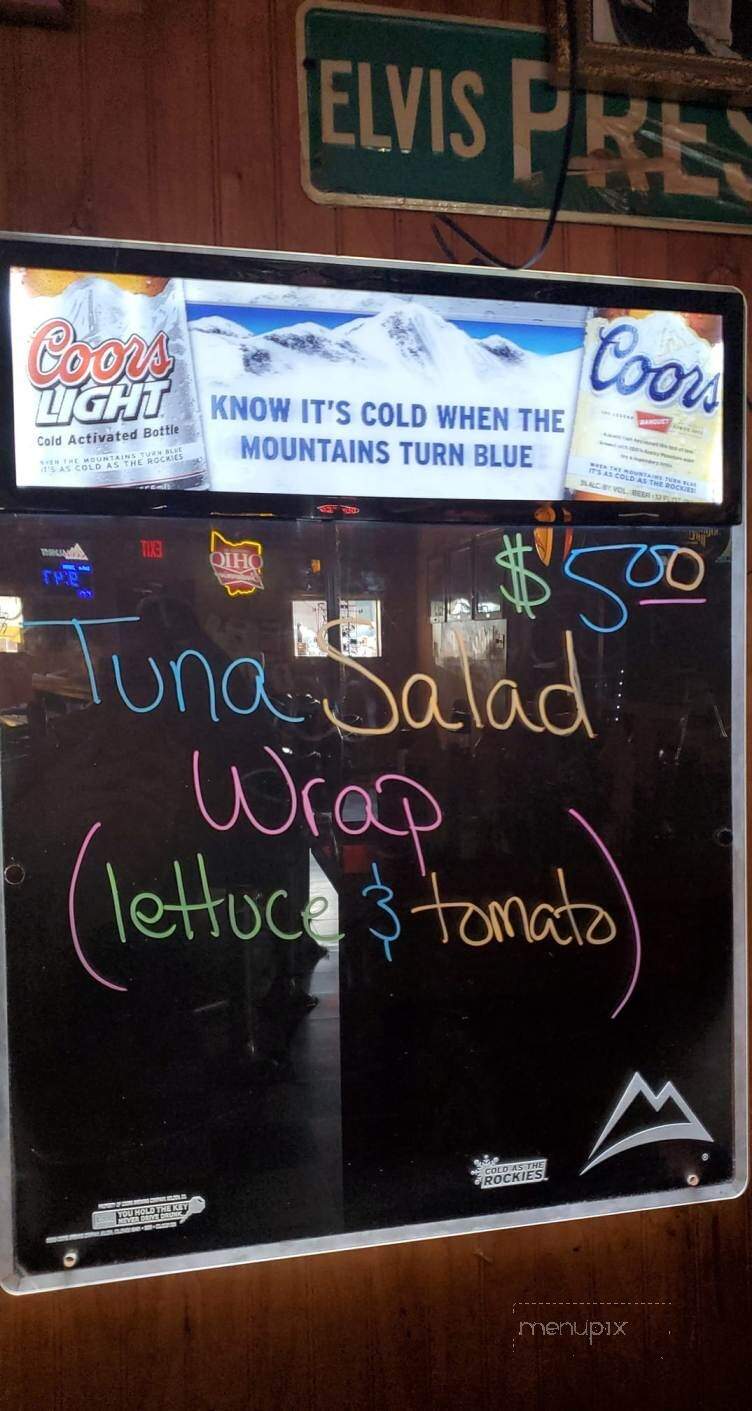 ELVIS PRES
Coors
LIGHT
Cold Activated Bottle
WHEN THE MOUNTAINS TURN BLUE
IT'S AS COLD AS THE ROCKIES
KNOW IT'S COLD WHEN THE
MOUNTAINS TURN BLUE
Coors
BANQUET
WHEN THE MOUNTAINS TURN BLUE
IT'S AS COLD AS THE ROCKIES
EXIT
OHIO
$ 5.00
Tuna Salad
Wrap
(lettuce & tomato)
COLD AS THE
ROCKIES
YOU HOLD THE KEY
NEVER DRIVE DRUNK
menupix